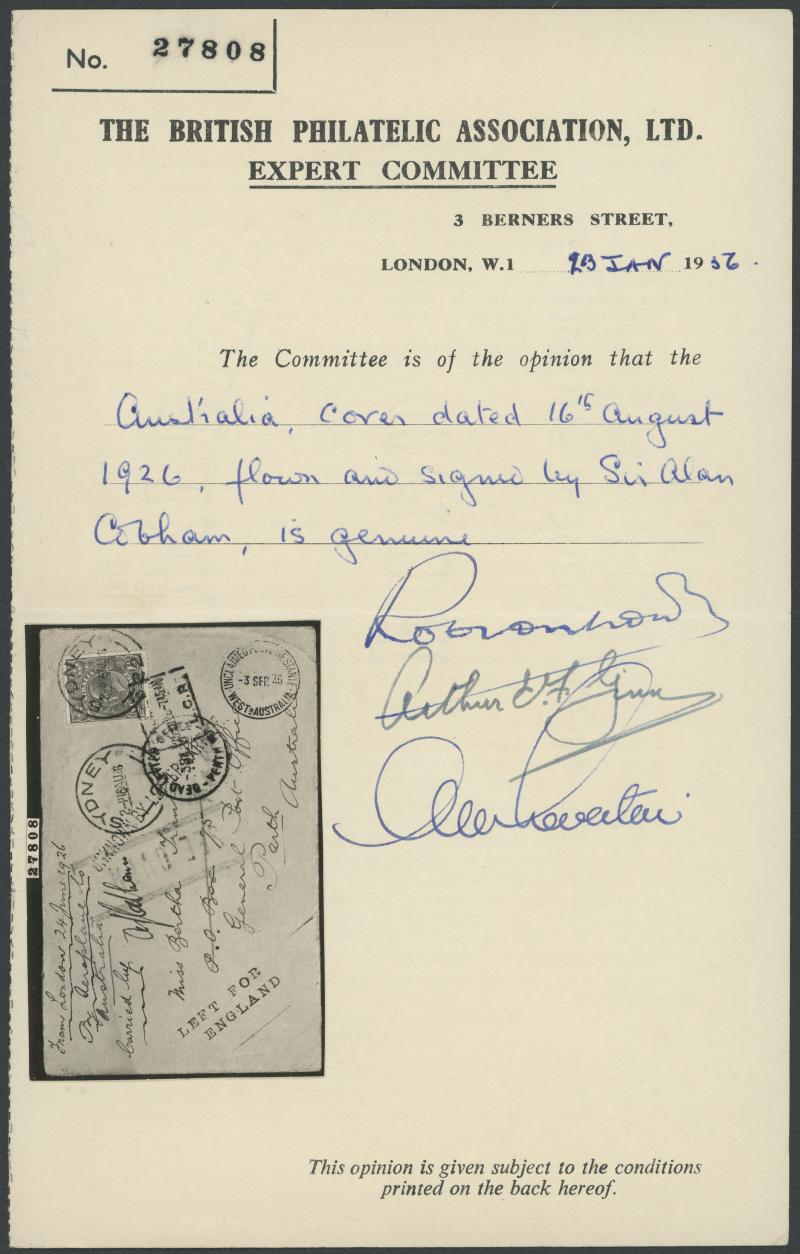 No. 27808
THE BRITISH PHILATELIC ASSOCIATION, LTD.
EXPERT COMMITTEE
3 BERNERS STREET,
LONDON, W.1 23 JAN 1956.
The Committee is of the opinion that the
Australia, cover dated 16th August
1926, flown and signed by Sir Alan
Cobham, is genuine
Arthur
27808
SYDNEY
UNCLAIMED
-3 SEP 26
WEST AUSTRALIA
D.L.R.
DEAD LETTER
PERTH
SYDNEY
From London 24 June 1926
By Aeroplane to
Australia
Carried by
Miss Bertha
P.O. Box
General Post Office
Perth
Australia
LEFT FOR
ENGLAND
This opinion is given subject to the conditions
printed on the back hereof.